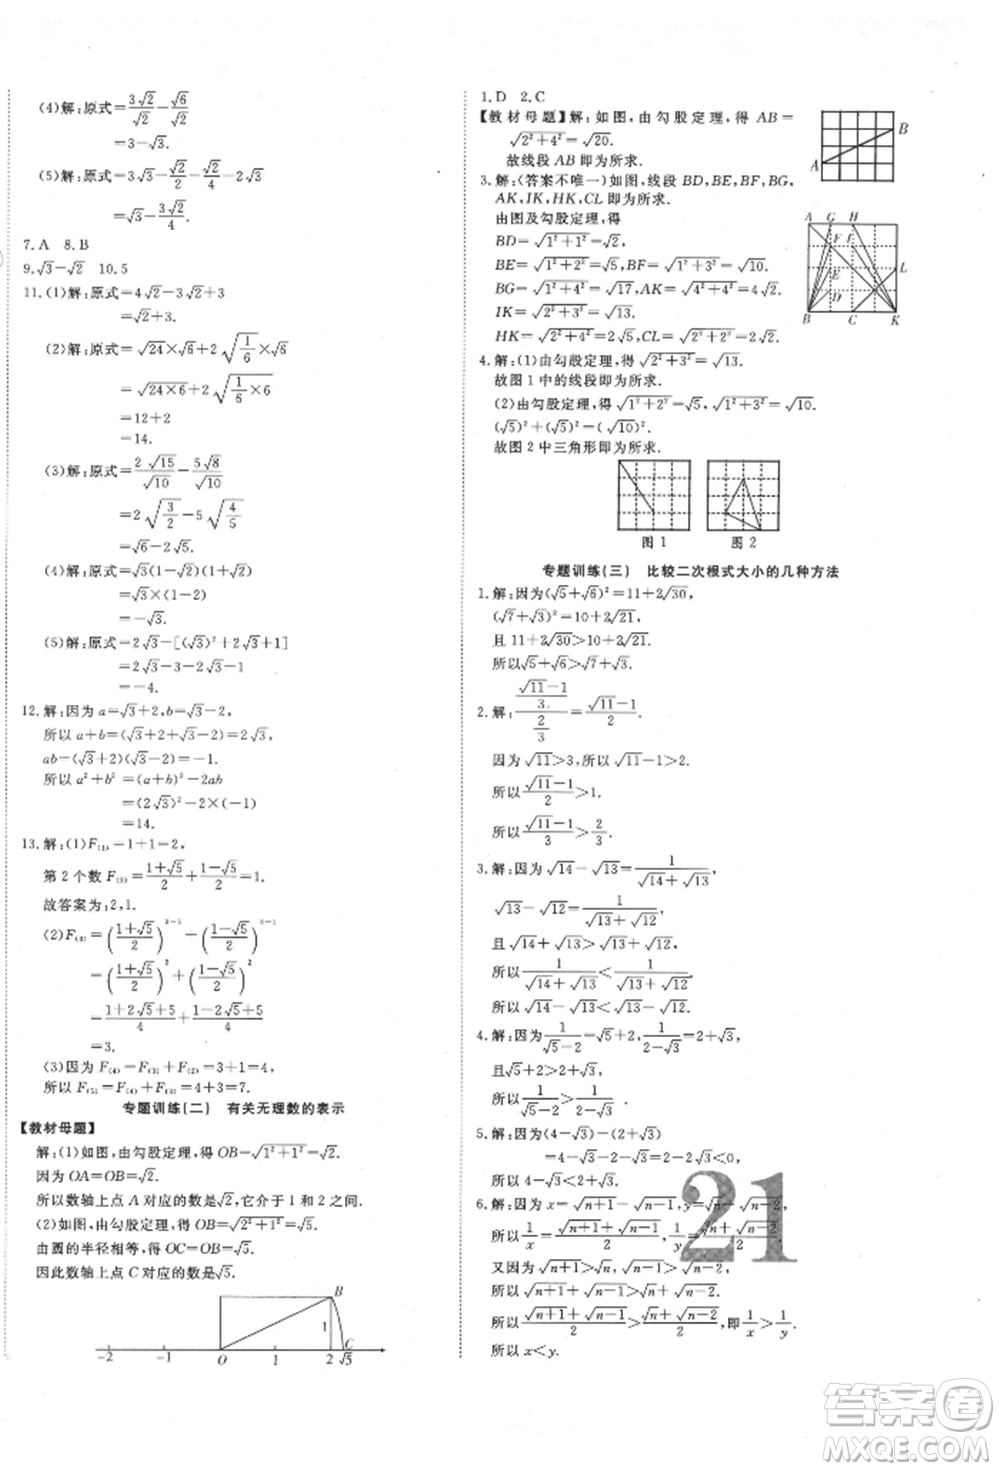 (4)解:原式=3√2/√2-√6/√2
=3-√3.
(5)解:原式=3√3-√2/2-√2/4-2√3
=√3-3√2/4.
7.A 8.B
9.√3-√2 10.5
11.(1)解:原式=4√2-3√2+3
=√2+3.
(2)解:原式=√24×√6+2√(1/6)×√6
=√(24×6)+2√(1/6×6)
=12+2
=14.
(3)解:原式=2√15/√10-5√8/√10
=2√(3/2)-5√(4/5)
=√6-2√5.
(4)解:原式=√3×(-1)×1
=-√3.
(5)解:原式=2√3-[(√3)²+2√3+1]
=2√3-3-2√3-1
=-4.
12.解:因为a=√3+2,b=√3-2,
所以a+b=(√3+2+√3-2)=2√3,
ab=(√3+2)(√3-2)=-1.
所以a²+b²=(a+b)²-2ab
=(2√3)²-2×(-1)
=14.
13.解:(1)F₍₁₎=1+1=2,
第2个数F₍₂₎=(1+√5)/2+(1-√5)/2=1.
故答案为:2,1.
(2)F₍₃₎=((1+√5)/2)³⁻¹+((1-√5)/2)³⁻¹
=((1+√5)/2)²+((1-√5)/2)²
=(1+2√5+5)/4+(1-2√5+5)/4
=3.
(3)因为F₍₄₎=F₍₃₎+F₍₂₎=3+1=4,
所以F₍₅₎=F₍₄₎+F₍₃₎=4+3=7.
专题训练(二) 有关无理数的表示
【教材母题】
解:(1)如图,由勾股定理,得OB=√(1²+1²)=√2.
因为OA=OB=√2.
所以数轴上点A对应的数是√2,它介于1和2之间.
(2)如图,由勾股定理,得OB=√(2²+1²)=√5.
由圆的半径相等,得OC=OB=√5.
因此数轴上点C对应的数是√5.
B
1
C
-2 -1 O 1 2 √5
1.D 2.C
【教材母题】解:如图,由勾股定理,得AB=
√(2²+4²)=√20.
故线段AB即为所求.
A B
3.解:(答案不唯一)如图,线段BD,BE,BG,
AK,IK,HK,CL即为所求.
由图及勾股定理,得
BD=√(1²+1²)=√2,
BE=√(1²+2²)=√5,
BG=√(1²+4²)=√17,AK=√(4²+4²)=4√2,
IK=√(2²+3²)=√13,
HK=√(2²+4²)=2√5,CL=√(2²+2²)=2√2.
A G H
F I
E L
D
B C K
4.解:(1)由勾股定理,得√(2²+3²)=√13.
故图1中的线段即为所求.
(2)由勾股定理,得√(1²+2²)=√5,√(1²+3²)=√10.
(√5)²+(√5)²=(√10)².
故图2中三角形即为所求.
图1 图2
专题训练(三) 比较二次根式大小的几种方法
1.解:因为(√5+√6)²=11+2√30,
(√7+√3)²=10+2√21,
且11+2√30>10+2√21.
所以√5+√6>√7+√3.
2.解:((√11-1)/3)/(2/3)=(√11-1)/2.
因为√11>3,所以√11-1>2.
所以(√11-1)/2>1.
所以(√11-1)/3>2/3.
3.解:因为√14-√13=1/(√14+√13),
√13-√12=1/(√13+√12),
且√14+√13>√13+√12.
所以1/(√14+√13)<1/(√13+√12).
所以√14-√13<√13-√12.
4.解:因为1/(√5-2)=√5+2,1/(2-√3)=2+√3,
且√5+2>2+√3,
所以1/(√5-2)>1/(2-√3).
5.解:因为(4-√3)-(2+√3)
=4-√3-2-√3=2-2√3<0.
所以4-√3<2+√3.
6.解:因为x=√(n+1)-√(n-1),y=√n-√(n-2),
所以1/x=(√(n+1)+√(n-1))/2,1/y=(√n+√(n-2))/2.
又因为√(n+1)>√n,√(n-1)>√(n-2).
所以√(n+1)+√(n-1)>√n+√(n-2).
所以(√(n+1)+√(n-1))/2>(√n+√(n-2))/2,即1/x>1/y.
所以x<y.
21
答案卷
MXQE.COM